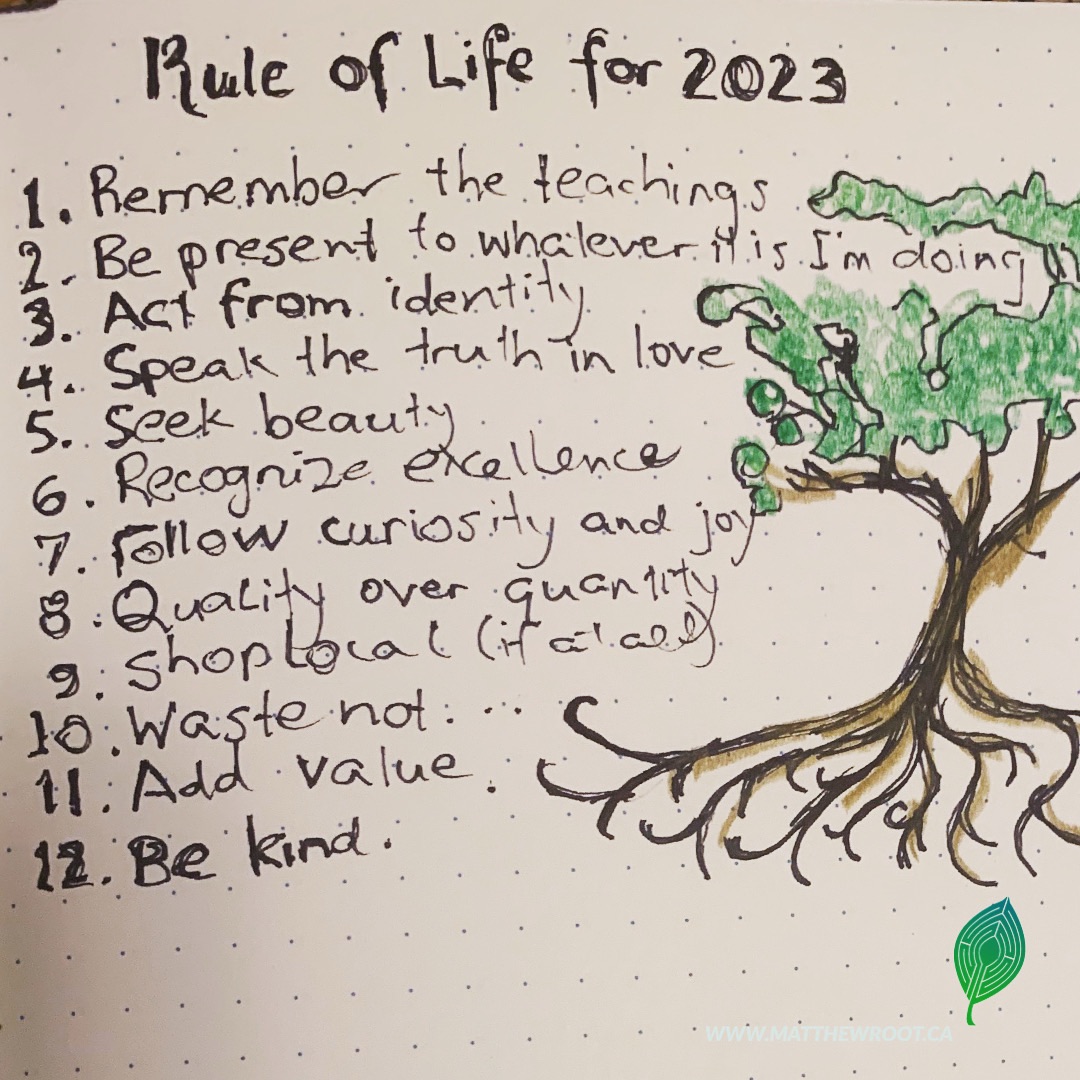 Rule of Life for 2023
1. Remember the teachings
2. Be present to whatever it is I'm doing
3. Act from identity
4. Speak the truth in love
5. Seek beauty
6. Recognize excellence
7. Follow curiosity and joy
8. Quality over quantity
9. Shop Local (if at all)
10. Waste not...
11. Add value.
12. Be kind.
WWW.MATTHEWROOT.CA